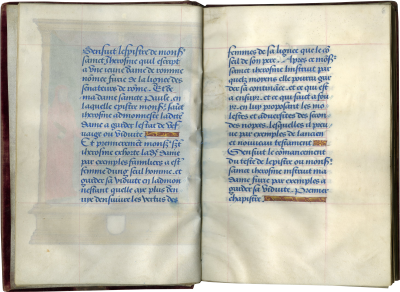 Sensuit lepistre de monsr
sainct iherosme quil escript
a vne ieune dame de romme
nōmee furie de la lignee des
senateurs de rōme. Et de
ma dame saincte Paule, en
laquelle epistre monsr sainct
iherosme admoneste ladite
dame a garder lestat de vef
uaige ou viduite
Et premierement monsr sct
iherosme exhorte lad dame
par exemples familiers a est
femme dung seul homme, et
garder sa viduite en ladmon
nestant quelle aye plus gen
uie densuivre les vertus des
femmes de sa lignee que le cō
seil de son pere. Apres ce monsr
sainct iherosme linstruit par
quelz moyens elle pourra gar
der sa continence, et ce quil est
a ensuyr, et ce quil fault a fou
yr, en luy proposant les mo
lestes et aduersites des secōn
des nopces, lesquelles il preu
ue par exemples de lancien
et nouueau testament
Sensuit le commancement
du texte de lepistre ou monsr
sainct iherosme instruit ma
dame furie par exemples a
garder sa viduite. Premier
chapistre